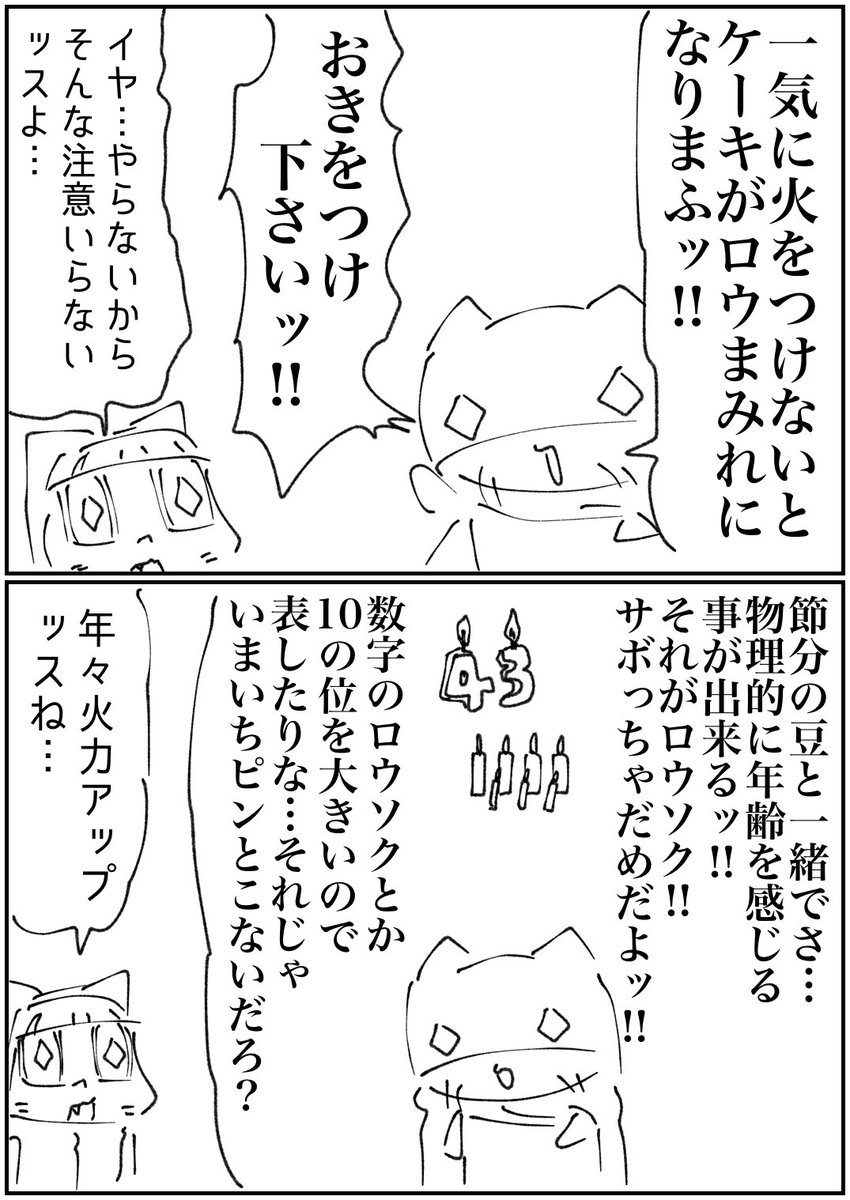 一気に火をつけないと
ケーキがロウまみれに
なりまふッ!!
おきをつけ
下さいッ!!
イヤ…やらないから
そんな注意いらない
ッスよ…
節分の豆と一緒でさ…
物理的に年齢を感じる
事が出来るッ!!
それがロウソク!!
サボっちゃだめだよッ!!
43
数字のロウソクとか
10の位を大きいので
表したりな…それじゃ
いまいちピンとこないだろ？
年々火力アップ
ッスね…